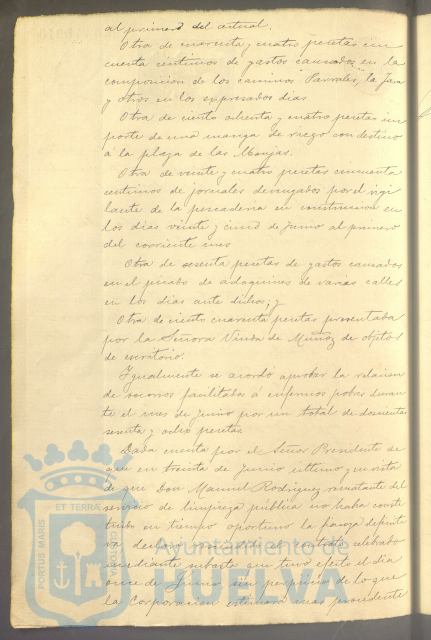 al primero del actual.
Otra de cuarenta y cuatro pesetas cin
cuenta centimos de gastos causados en la
composición de los caminos "Parrales, la Jara
y otros en los expresados dias
Otra de ciento ochenta y cuatro pesetas im
porte de una manga de riego con destino
á la plaza de las Monjas.
Otra de veinte y cuatro pesetas cincuenta
centimos de jornales devengados por el vigi
lante de la pescaderia en construccion en
los dias veinte y cinco de Junio al primero
del corriente mes
Otra de sesenta pesetas de gastos causados
en el picado de adoquines de varias calles
en los dias ante dichos; y
Otra de ciento cuarenta pesetas presentada
por la Señora Viuda de Muñoz de objetos
de escritorio.
Igualmente se acordó aprobar la relacion
de socorros facilitados á enfermos pobres duran
te el mes de Junio por un total de doscientas
sesenta y ocho pesetas
Dada cuenta por el Señor Presidente de
que en treinta de Junio ultimo y en vista
de que Don Manuel Rodriguez rematante del
servicio de limpieza pública no habia consti
tuido en tiempo oportuno la fianza definiti
va declaró rescindido el contrato celebrado
mediante subasta que tuvo efecto el dia
once de Junio sin perjuicio de lo que
la Corporacion estimara mas procedente
PORTUS MARIS ET TERRAE CUSTODIA
Ayuntamiento de
HUELVA